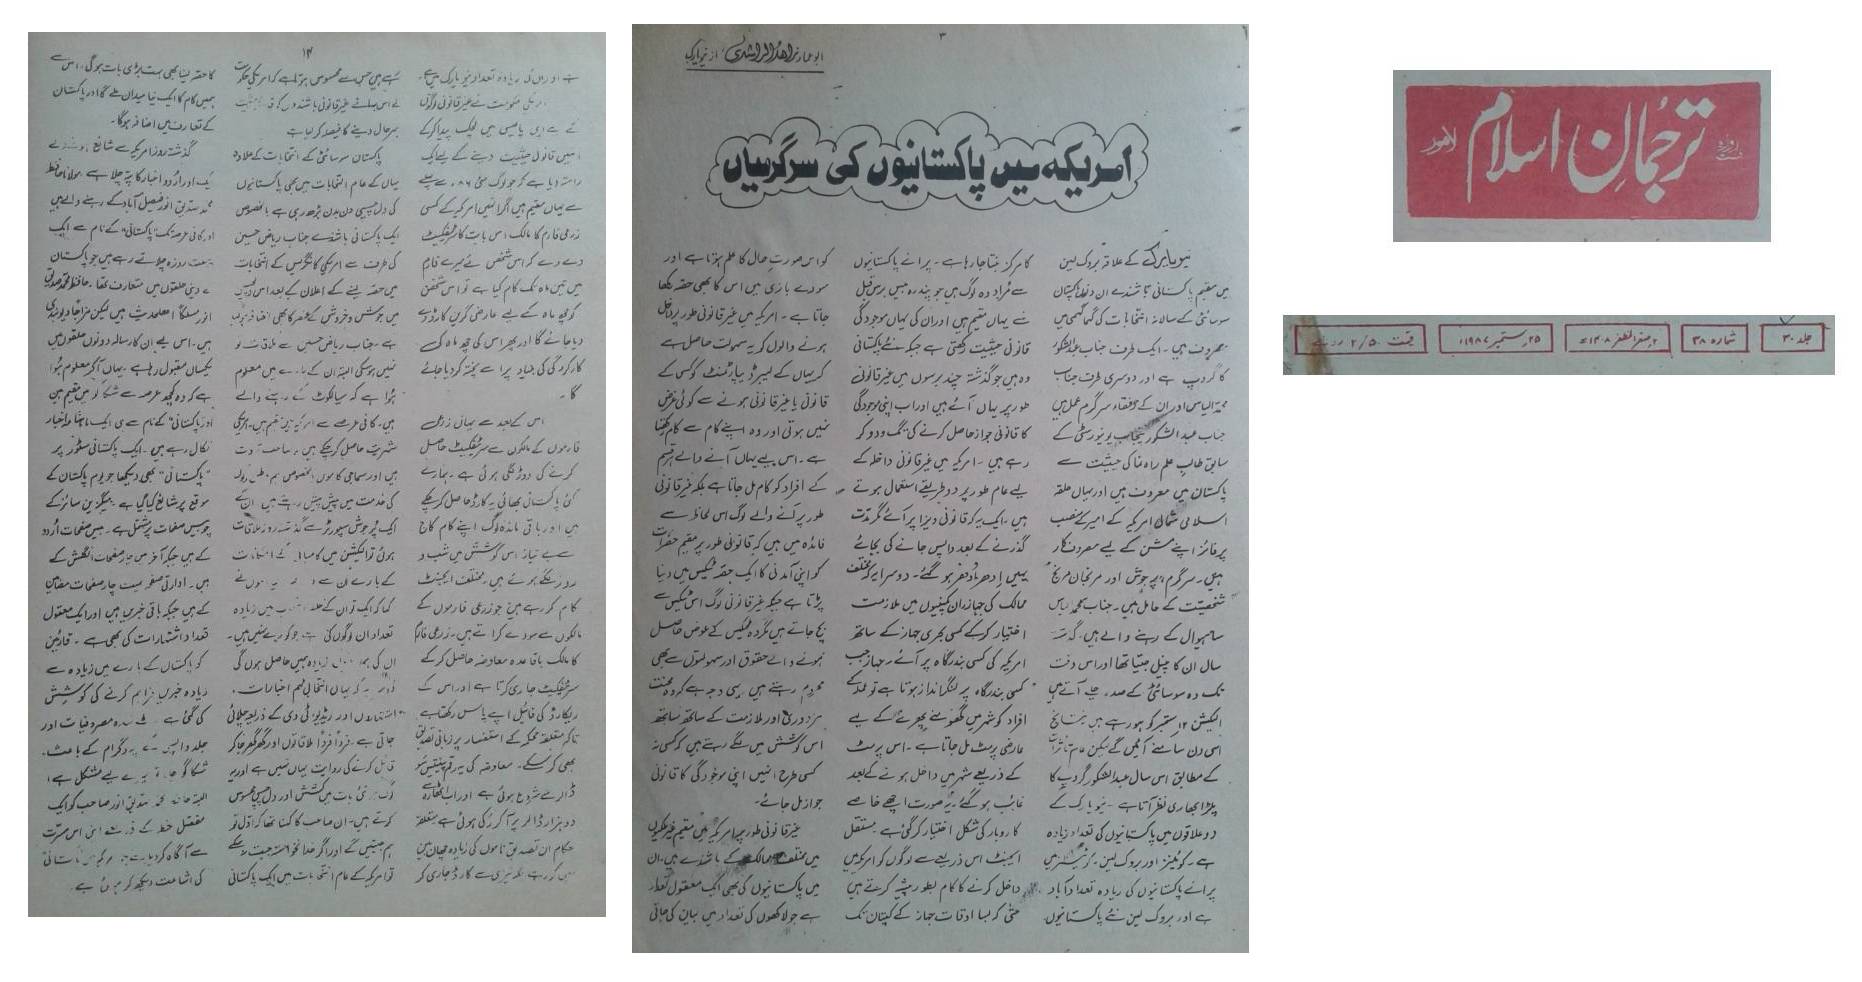 ترجمانِ اسلام
ہفت روزہ
لاہور
جلد ۳۰
شمارہ ۳۸
۲ صفر المظفر ۱۴۰۸ھ
۲۵ ستمبر ۱۹۸۷ء
قیمت ۲/۵۰ روپے
۳
ابوعمار زاہد الراشدی از نیویارک
امریکہ میں پاکستانیوں کی سرگرمیاں
نیویارک کے علاقہ بروک لین
میں مقیم پاکستانی باشندے ان دنوں پاکستان
سوسائٹی کے سالانہ انتخابات کی گہما گہمی میں
مصروف ہیں۔ ایک طرف جناب عبدالشکور
کا گروپ ہے اور دوسری طرف جناب
محمد الیاس اور ان کے رفقاء سرگرم عمل ہیں
جناب عبد الشکور پنجاب یونیورسٹی کے
سابق طالب علم راہ نما کی حیثیت سے
پاکستان میں معروف ہیں اور یہاں حلقہ
اسلامی شمالی امریکہ کے امیر کے منصب
پر فائز اپنے مشن کے لیے مصروف کار
ہیں۔ سرگرم، پرجوش اور مرنجان مرنج
شخصیت کے حامل ہیں۔ جناب محمد الیاس
ساہیوال کے رہنے والے ہیں، گذشتہ
سال ان کا پینل جیتا تھا اور اس وقت
تک وہ سوسائٹی کے صدر چلے آتے ہیں
الیکشن ۱۲ ستمبر کو ہو رہے ہیں نتائج
اسی دن سامنے آئیں گے لیکن عام تاثرات
کے مطابق اس سال عبدالشکور گروپ کا
پلڑا بھاری نظر آتا ہے۔ نیویارک کے
دو علاقوں میں پاکستانیوں کی تعداد زیادہ
ہے۔ کوئینز اور بروک لین۔ کوئینز میں
پرانے پاکستانیوں کی زیادہ تعداد آباد
ہے اور بروک لین نئے پاکستانیوں
کا مرکز بنتا جا رہا ہے۔ پرانے پاکستانیوں
سے مراد وہ لوگ ہیں جو پندرہ بیس برس قبل
سے یہاں مقیم ہیں اور ان کی یہاں موجودگی
قانونی حیثیت رکھتی ہے جبکہ نئے پاکستانی
وہ ہیں جو گذشتہ چند برسوں میں غیر قانونی
طور پر یہاں آئے ہیں اور اب اپنی موجودگی
کا قانونی جواز حاصل کرنے کی تگ و دو کر
رہے ہیں۔ امریکہ میں غیر قانونی داخلہ کے
لیے عام طور پر دو طریقے استعمال ہوتے
ہیں۔ ایک یہ کہ قانونی ویزا پر آئے مگر مدت
گذرنے کے بعد واپس جانے کی بجائے
یہیں ادھر ادھر ہو گئے۔ دوسرا یہ کہ مختلف
ممالک کی جہازران کمپنیوں میں ملازمت
اختیار کر کے کسی بحری جہاز کے ساتھ
امریکہ کی کسی بندرگاہ پر آئے، جہاز جب
کسی بندرگاہ پر لنگرانداز ہوتا ہے تو عملہ کے
افراد کو شہر میں گھومنے پھرنے کے لیے
عارضی پرمٹ مل جاتا ہے۔ اس پرمٹ
کے ذریعے شہر میں داخل ہونے کے بعد
غائب ہو گئے۔ یہ صورت اچھے خاصے
کاروبار کی شکل اختیار کر گئی ہے مستقل
ایجنٹ اس ذریعے سے لوگوں کو امریکہ میں
داخل کرنے کا کام بطور پیشہ کرتے ہیں
حتیٰ کہ بسا اوقات جہاز کے کپتان تک
کو اس صورت حال کا علم ہوتا ہے اور
سودے بازی میں اس کا بھی حصہ رکھا
جاتا ہے۔ امریکہ میں غیر قانونی طور پر داخل
ہونے والوں کو یہ سہولت حاصل ہے
کہ یہاں کے لیبر ڈیپارٹمنٹ کو کسی کے
قانونی یا غیر قانونی ہونے سے کوئی غرض
نہیں ہوتی اور وہ اپنے کام سے کام رکھتا
ہے۔ اس لیے یہاں آنے والے ہر قسم
کے افراد کو کام مل جاتا ہے بلکہ غیر قانونی
طور پر آنے والے لوگ اس لحاظ سے
فائدہ میں ہیں کہ قانونی طور پر مقیم حضرات
کو اپنی آمدنی کا ایک حصہ ٹیکس میں دینا
پڑتا ہے جبکہ غیر قانونی لوگ اس ٹیکس سے
بچ جاتے ہیں مگر وہ ٹیکس کے عوض حاصل
ہونے والے حقوق اور سہولتوں سے بھی
محروم رہتے ہیں یہی وجہ ہے کہ وہ محنت
مزدوری اور ملازمت کے ساتھ ساتھ
اس کوشش میں لگے رہتے ہیں کہ کسی نہ
کسی طرح انہیں اپنی موجودگی کا قانونی
جواز مل جائے۔
غیر قانونی طور پر امریکہ میں مقیم غیر ملکیوں
میں مختلف ممالک کے باشندے ہیں، ان
میں پاکستانیوں کی بھی ایک معقول تعداد
ہے جو لاکھوں کی تعداد میں بیان کی جاتی
۱۴
ہے اور ان کی زیادہ تعداد نیویارک میں ہے۔
امریکی حکومت نے غیر قانونی لوگوں
کے لیے اپنی پالیسی میں لچک پیدا کر کے
انہیں قانونی حیثیت دینے کے لیے ایک
راستہ دیا ہے کہ جو لوگ مئی ۸۶ء سے پہلے
سے یہاں مقیم ہیں اگر انہیں امریکہ کے کسی
زرعی فارم کا مالک اس بات کا سرٹیفکیٹ
دے دے کہ اس شخص نے میرے فارم
میں تین ماہ تک کام کیا ہے تو اس شخص
کو چھ ماہ کے لیے عارضی گرین کارڈ دے
دیا جائے گا اور پھر اس کی چھ ماہ کی
کارکردگی کی بنیاد پر اسے پختہ کر دیا جائے
گا۔
اس کے بعد سے یہاں زرعی
فارموں کے مالکوں سے سرٹیفکیٹ حاصل
کرنے کی دوڑ لگی ہوئی ہے۔ ہمارے
کئی پاکستانی بھائی یہ کارڈ حاصل کر چکے
ہیں اور باقی ماندہ لوگ اپنے کام کاج
سے بے نیاز اس کوشش میں شب و
روز لگے ہوئے ہیں۔ مختلف ایجنٹ
کام کر رہے ہیں جو زرعی فارموں کے
مالکوں سے سودے کراتے ہیں۔ زرعی فارم
کا مالک باقاعدہ معاوضہ حاصل کر کے
سرٹیفکیٹ جاری کرتا ہے اور اس کے
ریکارڈ کی فائل اپنے پاس رکھتا ہے
تاکہ متعلقہ محکمہ کے استفسار پر زبانی تصدیق
بھی کر سکے۔ معاوضہ کی یہ رقم پینتیس سو
ڈالر سے شروع ہوئی ہے اور اب اٹھارہ سے
دو ہزار ڈالر پر آ کر رکی ہوئی ہے متعلقہ
حکام ان تصدیق ناموں کی زیادہ چھان بین
نہیں کر رہے بلکہ تیزی سے کارڈ جاری کر
رہے ہیں جس سے محسوس ہوتا ہے کہ امریکی حکومت
نے اس بہانے غیر قانونی باشندوں کو قانونی حیثیت
بہرحال دینے کا فیصلہ کر لیا ہے
پاکستان سوسائٹی کے انتخابات کے علاوہ
یہاں کے عام انتخابات میں بھی پاکستانیوں
کی دلچسپی دن بدن بڑھ رہی ہے بالخصوص
ایک پاکستانی باشندے جناب ریاض حسین
کی طرف سے امریکی کانگرس کے انتخابات
میں حصہ لینے کے اعلان کے بعد اس دلچسپی
میں جوش و خروش کے عنصر کا بھی اضافہ ہو گیا
ہے۔ جناب ریاض حسین سے ملاقات تو
نہیں ہو سکی البتہ ان کے بارے میں معلوم
ہوا ہے کہ سیالکوٹ کے رہنے والے
ہیں، کافی عرصے سے امریکہ میں مقیم ہیں۔ امریکی
شہریت حاصل کر چکے ہیں۔
ہیں اور سماجی کاموں بالخصوص ہم وطنوں
کی خدمت میں پیش پیش رہتے ہیں، ان کے
ایک پرجوش سپورٹر سے گذشتہ روز ملاقات
ہوئی تو الیکشن میں کامیابی کے امکانات
کے بارے ان سے
گا کہ ایک تو ان کے حلقہ انتخاب میں زیادہ
تعداد ان لوگوں کی ہے جو کورے نہیں ہیں۔
جاتی ہے۔ فرداً فرداً ملاقاتوں اور گھر گھر جا کر
قائل کرنے کی روایت یہاں نہیں ہے اور یہ
لوگ ہر نئی بات میں کشش اور دلچسپی محسوس
کرتے ہیں۔ ان صاحب کا کہنا تھا کہ اول تو
ہم جیتیں گے اور اگر خدانخواستہ جیت نہ سکے
تو امریکہ کے عام انتخابات میں ایک پاکستانی
کا حصہ لینا بھی بہت بڑی بات ہوگی، اس سے
ہمیں کام کا ایک نیا میدان ملے گا اور پاکستان
کے تعارف میں اضافہ ہوگا۔
گذشتہ روز امریکہ سے شائع ہونے والے
ایک اور اردو اخبار کا پتہ چلا ہے مولانا حافظ
محمد صدیق انور فیصل آباد کے رہنے والے ہیں
اور کافی عرصہ تک "پاکستانی" کے نام سے ایک
ہفت روزہ چلاتے رہے ہیں جو پاکستان
کے دینی حلقوں میں متعارف تھا۔ حافظ محمد صدیق
انور مسلکاً اہلحدیث ہیں لیکن مزاجاً دیوبندی
ہیں۔ اس لیے ان کا رسالہ دونوں حلقوں میں
یکساں مقبول رہا ہے۔ یہاں آ کر معلوم ہوا
ہے کہ وہ کچھ عرصہ سے شکاگو میں مقیم ہیں
اور "پاکستانی" کے نام سے ہی ایک ماہنامہ اخبار
نکال رہے ہیں۔ ایک پاکستانی سٹور پر
"پاکستانی" بھی دیکھا جو یوم پاکستان کے
موقع پر شائع کیا گیا ہے۔ میگزین سائز کے
چوبیس صفحات پر مشتمل ہے۔ بیس صفحات اردو
کے ہیں جبکہ آخر میں چار صفحات انگلش کے
ہیں۔ ادارتی صفحہ سمیت چار صفحات مضامین
کے ہیں جبکہ باقی خبریں ہیں اور ایک معقول
تعداد اشتہارات کی بھی ہے۔ قارئین
کو پاکستان کے بارے میں زیادہ سے
زیادہ خبریں فراہم کرنے کی کوشش
کی گئی ہے۔ مصروفیات اور
جلد واپسی کے پروگرام کے باعث
شکاگو جانا میرے لیے مشکل ہے،
البتہ حافظ محمد صدیق انور صاحب کو ایک
مفصل خط کے ذریعے اپنی اس مسرت
سے آگاہ کر دیا ہے جو
کی اشاعت دیکھ کر ہوئی ہے۔